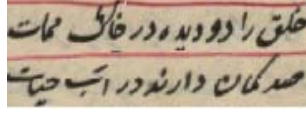 خلق را دو دیده در خاک ممات
صد کمان دارند در آب حیات